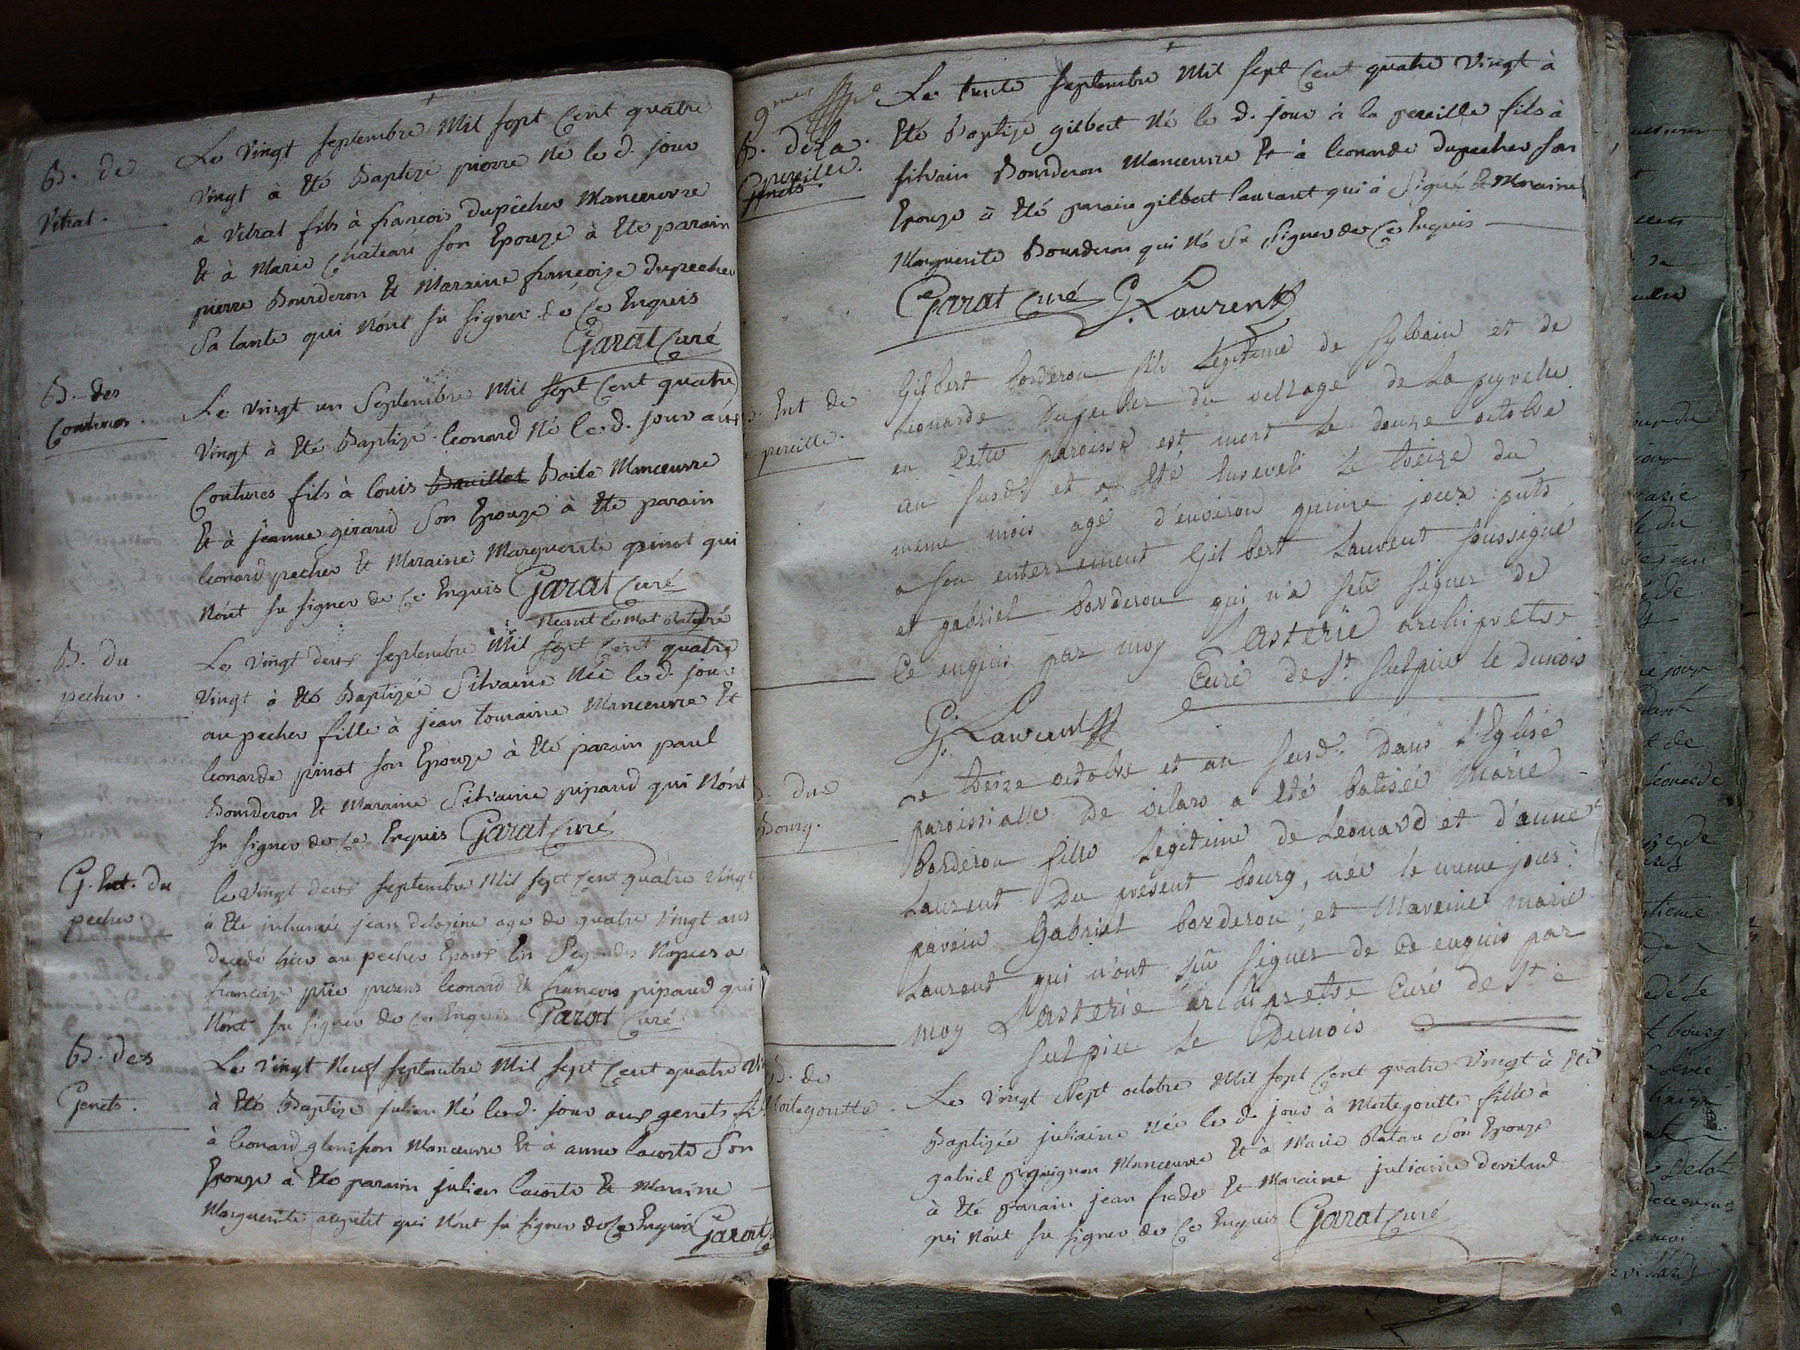 B. de
Vitrat.
Le vingt septembre mil sept Cent quatre
vingt à Eté Baptizé pierre Né le d. jour
à vitrat fils à francois dupêcher Manœuvre
Et à Marie Chateau son Epouze à Eté parain
pierre Bourderon Et Maraine françoize dupecher
Sa tante qui N'ont su signer de Ce Enquis
Garat Curé
B. des
Coutures.
Le vingt un Septembre Mil sept Cent quatre
vingt à Eté Baptizé leonard Né le d. jour aux
Coutures fils à louis Baile Manœuvre
Et à jeanne girard Son Epouze à Eté parain
leonard pecher Et Maraine Marguerite pinot qui
N'ont su signer de Ce Enquis Garat Curé
Neant le mot
B. du
pecher.
Le vingt deux septembre Mil sept Cent quatre
vingt à Eté Baptizée Silvaine Née le d. jour
au pecher fille à jean touraine Manœuvre Et
leonarde pinot son Epouze à Eté parain paul
Bourderon Et Maraine Silvaine pipaud qui N'ont
su signer de Ce Enquis Garat Curé
G. Ent. du
pecher.
le vingt deux septembre Mil sept Cent quatre vingt
à Eté inhumé jean age de quatre vingt ans
decedé hier au pecher Epoux En Segondes Nopces a
françoize presens leonard Et francois pipaud qui
N'ont su signer de Ce Enquis Garat Curé
B. des
Genets.
Le vingt Neuf septembre Mil sept Cent quatre
à Eté Baptize julien Né le d. jour aux genets
à leonard glenisson Manœuvre Et à anne lacoste Son
Epouze à Eté parain julien lacoste Et Maraine
Marguerite qui N'ont su signer de Ce Enquis Garat
9mes
B. de la
pereille.
Genets.
Le trente septembre Mil sept Cent quatre vingt à
Eté Baptize gilbert Né le d. jour à la pereille fils à
silvain Bourderon Manœuvre Et à leonarde dupecher son
Epouze à Eté parain gilbert laurant qui à Signé Et Maraine
Marguerite Bourderon qui N'a Su Signer de Ce Enquis
Garat Curé G. Laurent
Ent de
pereille.
Gilbert borderon fils Legitime de Sylvain et de
Leonarde Dupecher du village de La peyrelle
en Cette paroisse est mort le douze octobre
an susd. et a eté Enseveli le treize du
meme mois agé d'environ quinze jours: pnts
a son enterrement Gilbert Laurent soussigné
et gabriel borderon qui n'a sçu signer de
Ce enquis par moy Lasterie archipretre
Curé de St. Sulpice le Dunois
G. Laurent
B. du
Bourg.
Le treize octobre et an susd. Dans L'Eglise
paroissialle De vilard a eté batisée Marie
borderon fille Legitime de Leonard et d'anne
Laurent Du present bourg, née le meme jour:
parein Gabriel borderon; et Mareine marie
Laurent qui n'ont sçu signer de Ce enquis par
moy Lasterie archipretre Curé de St
Sulpice le Dunois
B. de
Mortegoutte.
Le vingt sept octobre Mil sept Cent quatre vingt à Eté
Baptizée juliaine Née le d. jour à Mortegoutte fille à
gabriel Manœuvre Et à Marie Son Epouze
à Eté parain jean frader Et Maraine juliaine
qui N'ont su signer de Ce Enquis Garat Curé